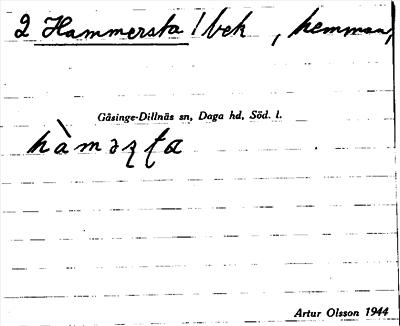 2 Hammersta 1/bek, hemman,
Gåsinge-Dillnäs sn, Daga hd, Söd. l.
hàməʐʈa
Artur Olsson 1944